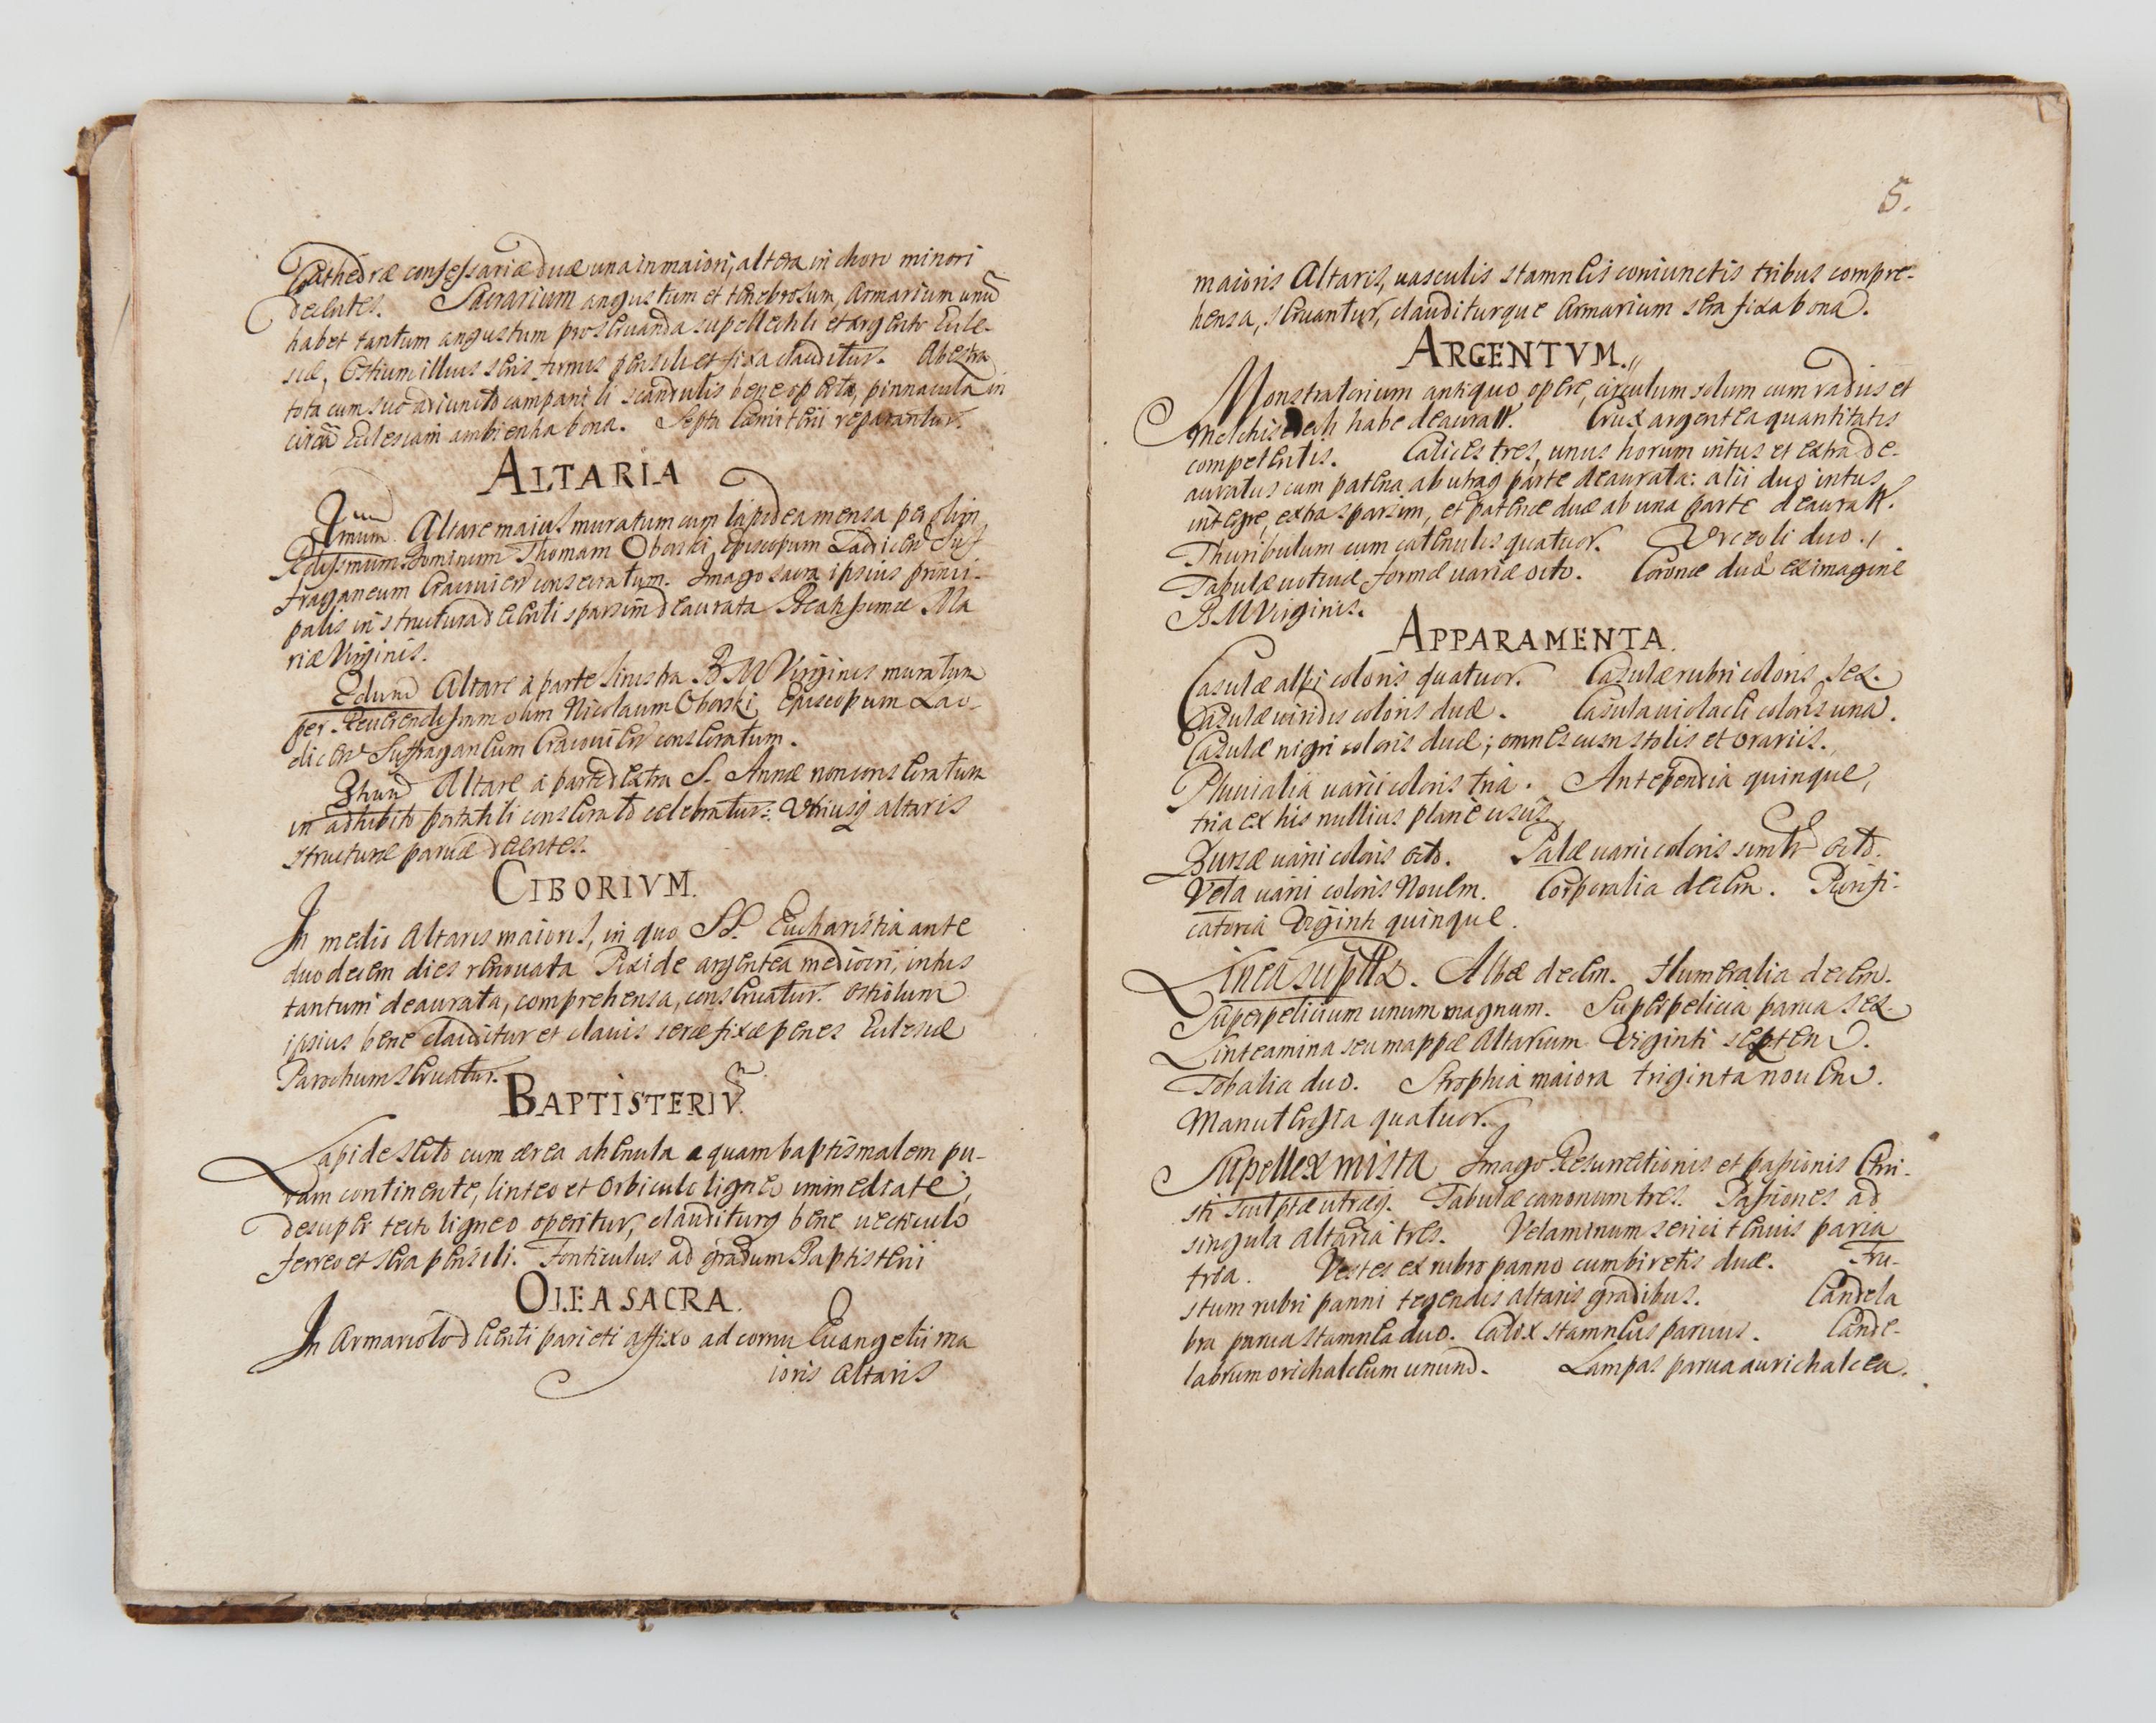 Cathedræ confessariæ duæ una in maiori, altera in choro minori
decentes. Sacrarium angustum et tenebrosum, Armarium unū
habet tantum angustum pro seruanda supellectili et argento Eccle-
siæ, Ostium illius seris firmis pensili et fixa clauditur. Ab extra
tota cum suo adiuncto campanili scandulis bene operta, pinnacula in
circū Eclesiam ambientia bona. Septa Cœmiterii reparantur.
ALTARIA
Imum Altare maius muratum cum lapidea mensa per olim
Rdissmum Dominum Thomam Oborski, Episcopum Laodicen Suf-
fraganeum Cracouien consecratum. Imago sacra ipsius princi-
palis in structura decenti sparsim deaurata Beatissimæ Ma
riæ Virginis.
Edum Altare à parte sinistra B M Virginis muratum
per Reuerendissimum olim Nicolaum Oborski Episcopum Lao-
dicen Suffraganeum Cracouien consecratum.
3tium Altare à parte dextra S. Annæ non consecratum
in adhibito portatili consecrato celebratur: Vtriusq altaris
structuræ paruæ decentes.
CIBORIVM.
In medio Altaris maioris, in quo SS. Eucharistia ante
duodecem dies renouata Pixide argentea mediocri, intus
tantum deaurata, comprehensa, conseruatur. Ostiolum
ipsius bene clauditur et clauis seræ fixæ penes Eclesiæ
Parochum seruatur.
BAPTISTERIV̄
Lapide secto cum ærea ahenula aquam baptismalem pu-
ram continente, linteo et orbiculo ligneo immediatè,
desuper tecto ligneo operitur, clauditurq bene uecticulo
ferreo et sera pensili. Fonticulus ad gradum Baptisterii
OLEA SACRA.
In Armariolo decenti parieti affixo ad cornu Euangelii ma
ioris Altaris
5.
maioris Altaris, uasculis stamneis coniunctis tribus compre-
hensa, seruantur, clauditurque Armarium sera fixa bona.
ARGENTVM.
Monstratorium antiquo opere, circulum solum cum radiis et
Melchisedech habe deauratt. Crux argentea quantitatis
competentis. Calices tres, unus horum intus et extra de-
auratus cum patena ab utraq parte deaurata: alii duo intus
integre, extra sparsim, et patenæ duæ ab una parte deauratt.
Thuribulum cum catenulis quatuor. Vrceoli duo.
Tabulæ uotiuæ formæ uariæ octo. Coronæ duæ ex imagine
B.M Virginis.
APPARAMENTA.
Casulæ albi coloris quatuor. Casulæ rubri coloris sex.
Casulæ uiridis coloris duæ. Casula uiolacei coloris una.
Casulæ nigri coloris duæ; omnes cum stolis et orariis.
Pluuialia uarii coloris tria. Antependia quinque,
tria ex his nullius planè usus.
Bursæ uarii coloris octo. Palæ uarii coloris octo.
Vela uarii coloris Nouem. Corporalia decem. Purifi-
catoria Viginti quinque.
Linea supllx. Albæ decem. Humeralia decem.
Superpelicium unum magnum. Superpelicia parua sex.
Linteamina seu mappæ Altarium Viginti septem.
Tobalia duo. Strophia maiora triginta nouem.
Manutergia quatuor.
Supellex mista Imago Resurrectionis et passionis Chri-
sti sculptæ utræq. Tabulæ canonum tres. Passiones ad
singula altaria tres. Velaminum serici tenuis paria
tria. Vestes ex rubro panno cum biretis duæ. Fru-
stum rubri panni tegendis altaris gradibus. Candela
bra parua stamnea duo. Calix stamneus paruus. Cande-
labrum orichalceum unum. Lampas parua aurichalcea.